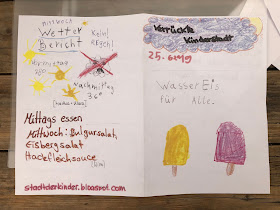 Mittwoch
Wetter
Bericht
Kein
Regen!
Vormittag
Nachmittag
36°
Mittags essen
Mittwoch: Bulgursalat
Eisbergsalat
Hackfleischsauce
stadtderkinder.blogspot.com
Verrückte
Kinderstadt
25.
Wasser Eis
für Alle.